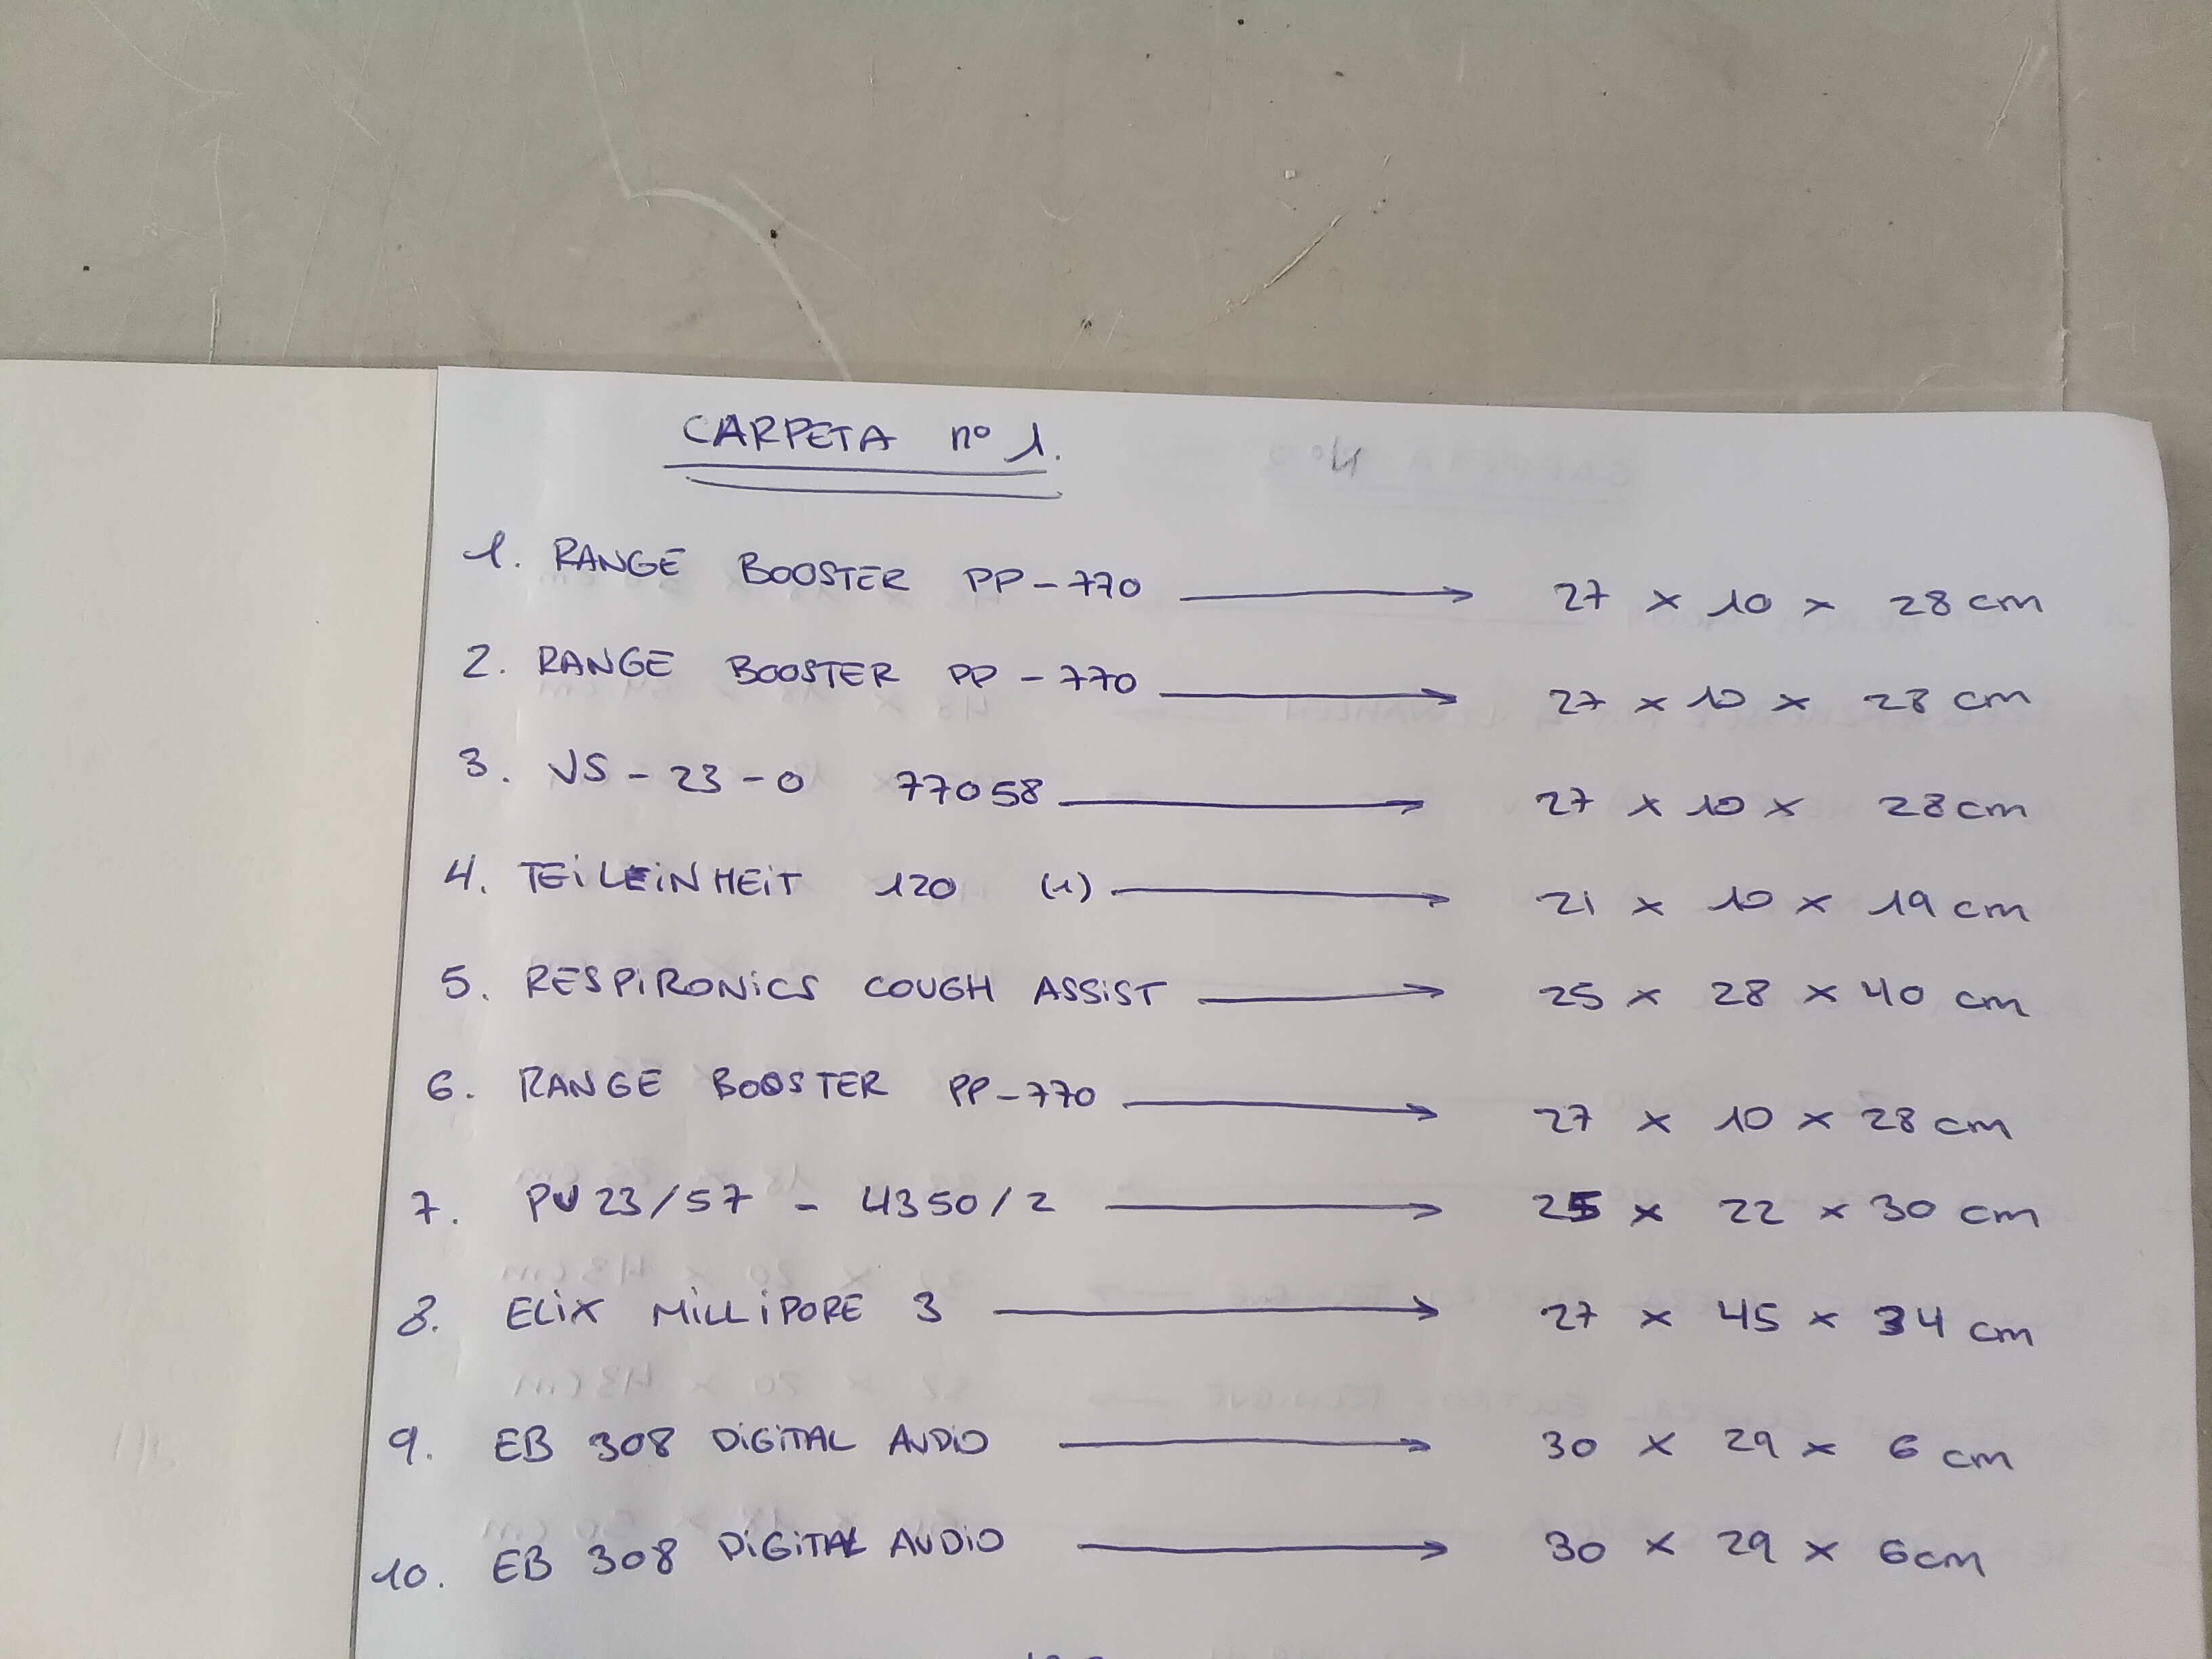 CARPETA nº 1.
1. RANGE BOOSTER PP-770 → 27 x 10 x 28 cm
2. RANGE BOOSTER PP-770 → 27 x 10 x 28 cm
3. VS-23-0 77058 → 27 x 10 x 28 cm
4. TEILEINHEIT 120 (1) → 21 x 10 x 19 cm
5. RESPIRONICS COUGH ASSIST → 25 x 28 x 40 cm
6. RANGE BOOSTER PP-770 → 27 x 10 x 28 cm
7. PV 23/57 - 4350/2 → 25 x 22 x 30 cm
8. ELIX MILLIPORE 3 → 27 x 45 x 34 cm
9. EB 308 DIGITAL AUDIO → 30 x 29 x 6 cm
10. EB 308 DIGITAL AUDIO → 30 x 29 x 6 cm